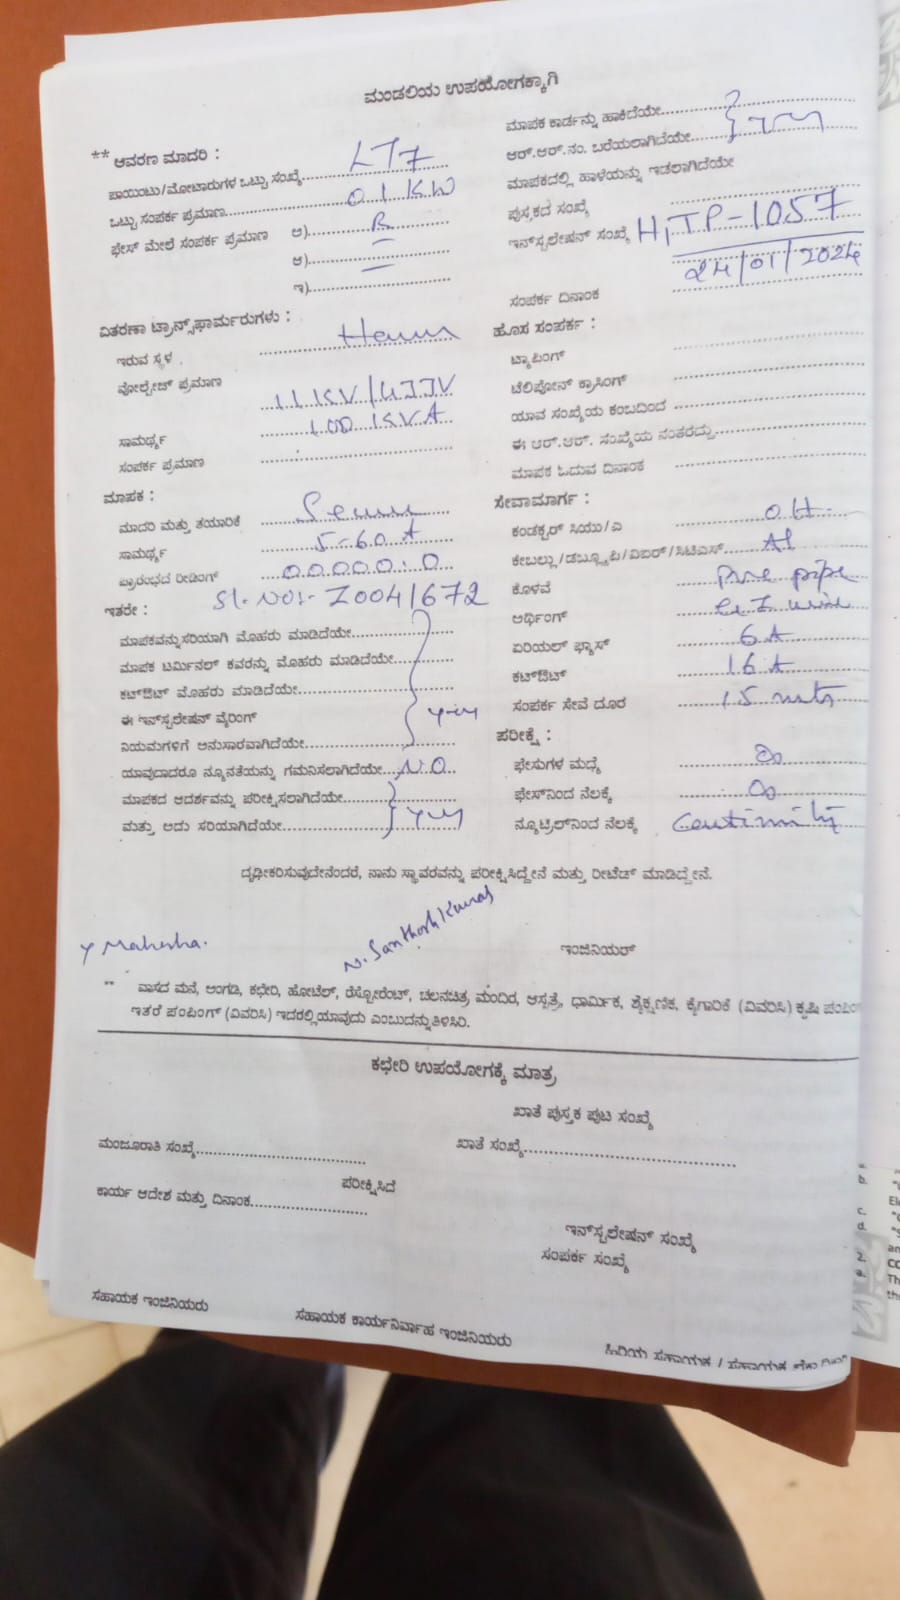 ಮಂಡಲಿಯ ಉಪಯೋಗಕ್ಕಾಗಿ
** ಆವರಣ ಮಾದರಿ :
ಪಾಯಿಂಟು/ಮೋಟಾರುಗಳ ಒಟ್ಟು ಸಂಖ್ಯೆ LT7
ಒಟ್ಟು ಸಂಪರ್ಕ ಪ್ರಮಾಣ 01 KW
ಫೇಸ್ ಮೇಲೆ ಸಂಪರ್ಕ ಪ್ರಮಾಣ ಅ) R
ಆ) —
ಇ) —
ವಿತರಣಾ ಟ್ರಾನ್ಸ್‌ಫಾರ್ಮರುಗಳು :
ಇರುವ ಸ್ಥಳ
ವೋಲ್ಟೇಜ್ ಪ್ರಮಾಣ 11 KV/433V
ಸಾಮರ್ಥ್ಯ 100 KVA
ಸಂಪರ್ಕ ಪ್ರಮಾಣ
ಮಾಪಕ :
ಮಾದರಿ ಮತ್ತು ತಯಾರಿಕೆ
ಸಾಮರ್ಥ್ಯ 5-60 A
ಪ್ರಾರಂಭದ ರೀಡಿಂಗ್ 00000.0
ಇತರೇ : Sl. No:- Z0041672
ಮಾಪಕವನ್ನು ಸರಿಯಾಗಿ ಮೊಹರು ಮಾಡಿದೆಯೇ
ಮಾಪಕ ಟರ್ಮಿನಲ್ ಕವರನ್ನು ಮೊಹರು ಮಾಡಿದೆಯೇ
ಕಟ್‌ಔಟ್ ಮೊಹರು ಮಾಡಿದೆಯೇ
ಈ ಇನ್‌ಸ್ಟಲೇಷನ್ ವೈರಿಂಗ್ yes
ನಿಯಮಗಳಿಗೆ ಅನುಸಾರವಾಗಿದೆಯೇ
ಯಾವುದಾದರೂ ನ್ಯೂನತೆಯನ್ನು ಗಮನಿಸಲಾಗಿದೆಯೇ NO
ಮಾಪಕದ ಆದರ್ಶವನ್ನು ಪರೀಕ್ಷಿಸಲಾಗಿದೆಯೇ
ಮತ್ತು ಅದು ಸರಿಯಾಗಿದೆಯೇ yes
ಮಾಪಕ ಕಾರ್ಡನ್ನು ಹಾಕಿದೆಯೇ
ಆರ್.ಆರ್.ನಂ. ಬರೆಯಲಾಗಿದೆಯೇ yes
ಮಾಪಕದಲ್ಲಿ ಹಾಳೆಯನ್ನು ಇಡಲಾಗಿದೆಯೇ
ಪುಸ್ತಕದ ಸಂಖ್ಯೆ
ಇನ್‌ಸ್ಟಲೇಷನ್ ಸಂಖ್ಯೆ H1TP-1057
24/01/2024
ಸಂಪರ್ಕ ದಿನಾಂಕ
ಹೊಸ ಸಂಪರ್ಕ :
ಟ್ಯಾಪಿಂಗ್
ಟೆಲಿಫೋನ್ ಕ್ರಾಸಿಂಗ್
ಯಾವ ಸಂಖ್ಯೆಯ ಕಂಬದಿಂದ
ಈ ಆರ್.ಆರ್. ಸಂಖ್ಯೆಯ ನಂತರದ್ದು
ಮಾಪಕ ಓದುವ ದಿನಾಂಕ
ಸೇವಾಮಾರ್ಗ :
ಕಂಡಕ್ಟರ್ ಸಿಯು/ಎ OH.
ಕೇಬಲ್ಲು/ಡಬ್ಲ್ಯೂಪಿ/ವಿಐಆರ್/ಸಿಟಿಎಸ್ Al
ಕೊಳವೆ Pvc pipe
ಅರ್ಥಿಂಗ್ G.I wire
ಏರಿಯಲ್ ಫ್ಯೂಸ್ 6A
ಕಟ್‌ಔಟ್ 16 A
ಸಂಪರ್ಕ ಸೇವೆ ದೂರ 15 mts
ಪರೀಕ್ಷೆ :
ಫೇಸುಗಳ ಮಧ್ಯೆ ∞
ಫೇಸ್‌ನಿಂದ ನೆಲಕ್ಕೆ ∞
ನ್ಯೂಟ್ರಲ್‌ನಿಂದ ನೆಲಕ್ಕೆ Continuity
ದೃಢೀಕರಿಸುವುದೇನೆಂದರೆ, ನಾನು ಸ್ಥಾವರವನ್ನು ಪರೀಕ್ಷಿಸಿದ್ದೇನೆ ಮತ್ತು ರೀಟೆಡ್ ಮಾಡಿದ್ದೇನೆ.
Mahesha. N. Santhosh Kumar
ಇಂಜಿನಿಯರ್
** ವಾಸದ ಮನೆ, ಅಂಗಡಿ, ಕಛೇರಿ, ಹೋಟೆಲ್, ರೆಸ್ಟೋರೆಂಟ್, ಚಲನಚಿತ್ರ ಮಂದಿರ, ಆಸ್ಪತ್ರೆ, ಧಾರ್ಮಿಕ, ಶೈಕ್ಷಣಿಕ, ಕೈಗಾರಿಕೆ (ವಿವರಿಸಿ) ಕೃಷಿ ಪಂಪಿಂಗ್
ಇತರೆ ಪಂಪಿಂಗ್ (ವಿವರಿಸಿ) ಇದರಲ್ಲಿ ಯಾವುದು ಎಂಬುದನ್ನು ತಿಳಿಸಿರಿ.
ಕಛೇರಿ ಉಪಯೋಗಕ್ಕೆ ಮಾತ್ರ
ಖಾತೆ ಪುಸ್ತಕ ಪುಟ ಸಂಖ್ಯೆ
ಮಂಜೂರಾತಿ ಸಂಖ್ಯೆ ಖಾತೆ ಸಂಖ್ಯೆ
ಪರೀಕ್ಷಿಸಿದೆ
ಕಾರ್ಯ ಆದೇಶ ಮತ್ತು ದಿನಾಂಕ
ಇನ್‌ಸ್ಟಲೇಷನ್ ಸಂಖ್ಯೆ
ಸಂಪರ್ಕ ಸಂಖ್ಯೆ
ಸಹಾಯಕ ಇಂಜಿನಿಯರು ಸಹಾಯಕ ಕಾರ್ಯನಿರ್ವಾಹ ಇಂಜಿನಿಯರು ಹಿರಿಯ ಸಹಾಯಕ / ಸಹಾಯಕ